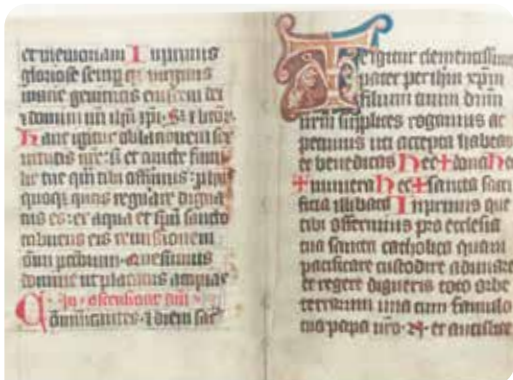 et memoriam Inprimis
gloriose semp qz virginis
marie genitricis eiusdem dei
⁊ domini nri ihu xpi. Sz ⁊ beator.
Hanc igitur oblationem ser
uitutis nre: sz et cuncte fami
lie tue qm tibi offerimus: pro his
quoqz quos regenerare digna
tus es: ex aqua et spu sancto
tribuens eis remissionem
oim pctorum. quesumus
domine ut placatus accipias
In ascensione dni
Comunicantes. ⁊ diem sac
Te igitur clementissime
pater per ihm xpm
filium tuum dnm
nrm supplices rogamus ac
petimus uti accepta habeas
et benedicas Hec + dona Hec
+ munera Hec + sancta sacri
ficia illibata Inprimis que
tibi offerimus pro ecclesia
tua sancta catholica quam
pacificare custodire adunare
et regere digneris toto orbe
terrarum una cum famulo
tuo papa nro. N. et antistite